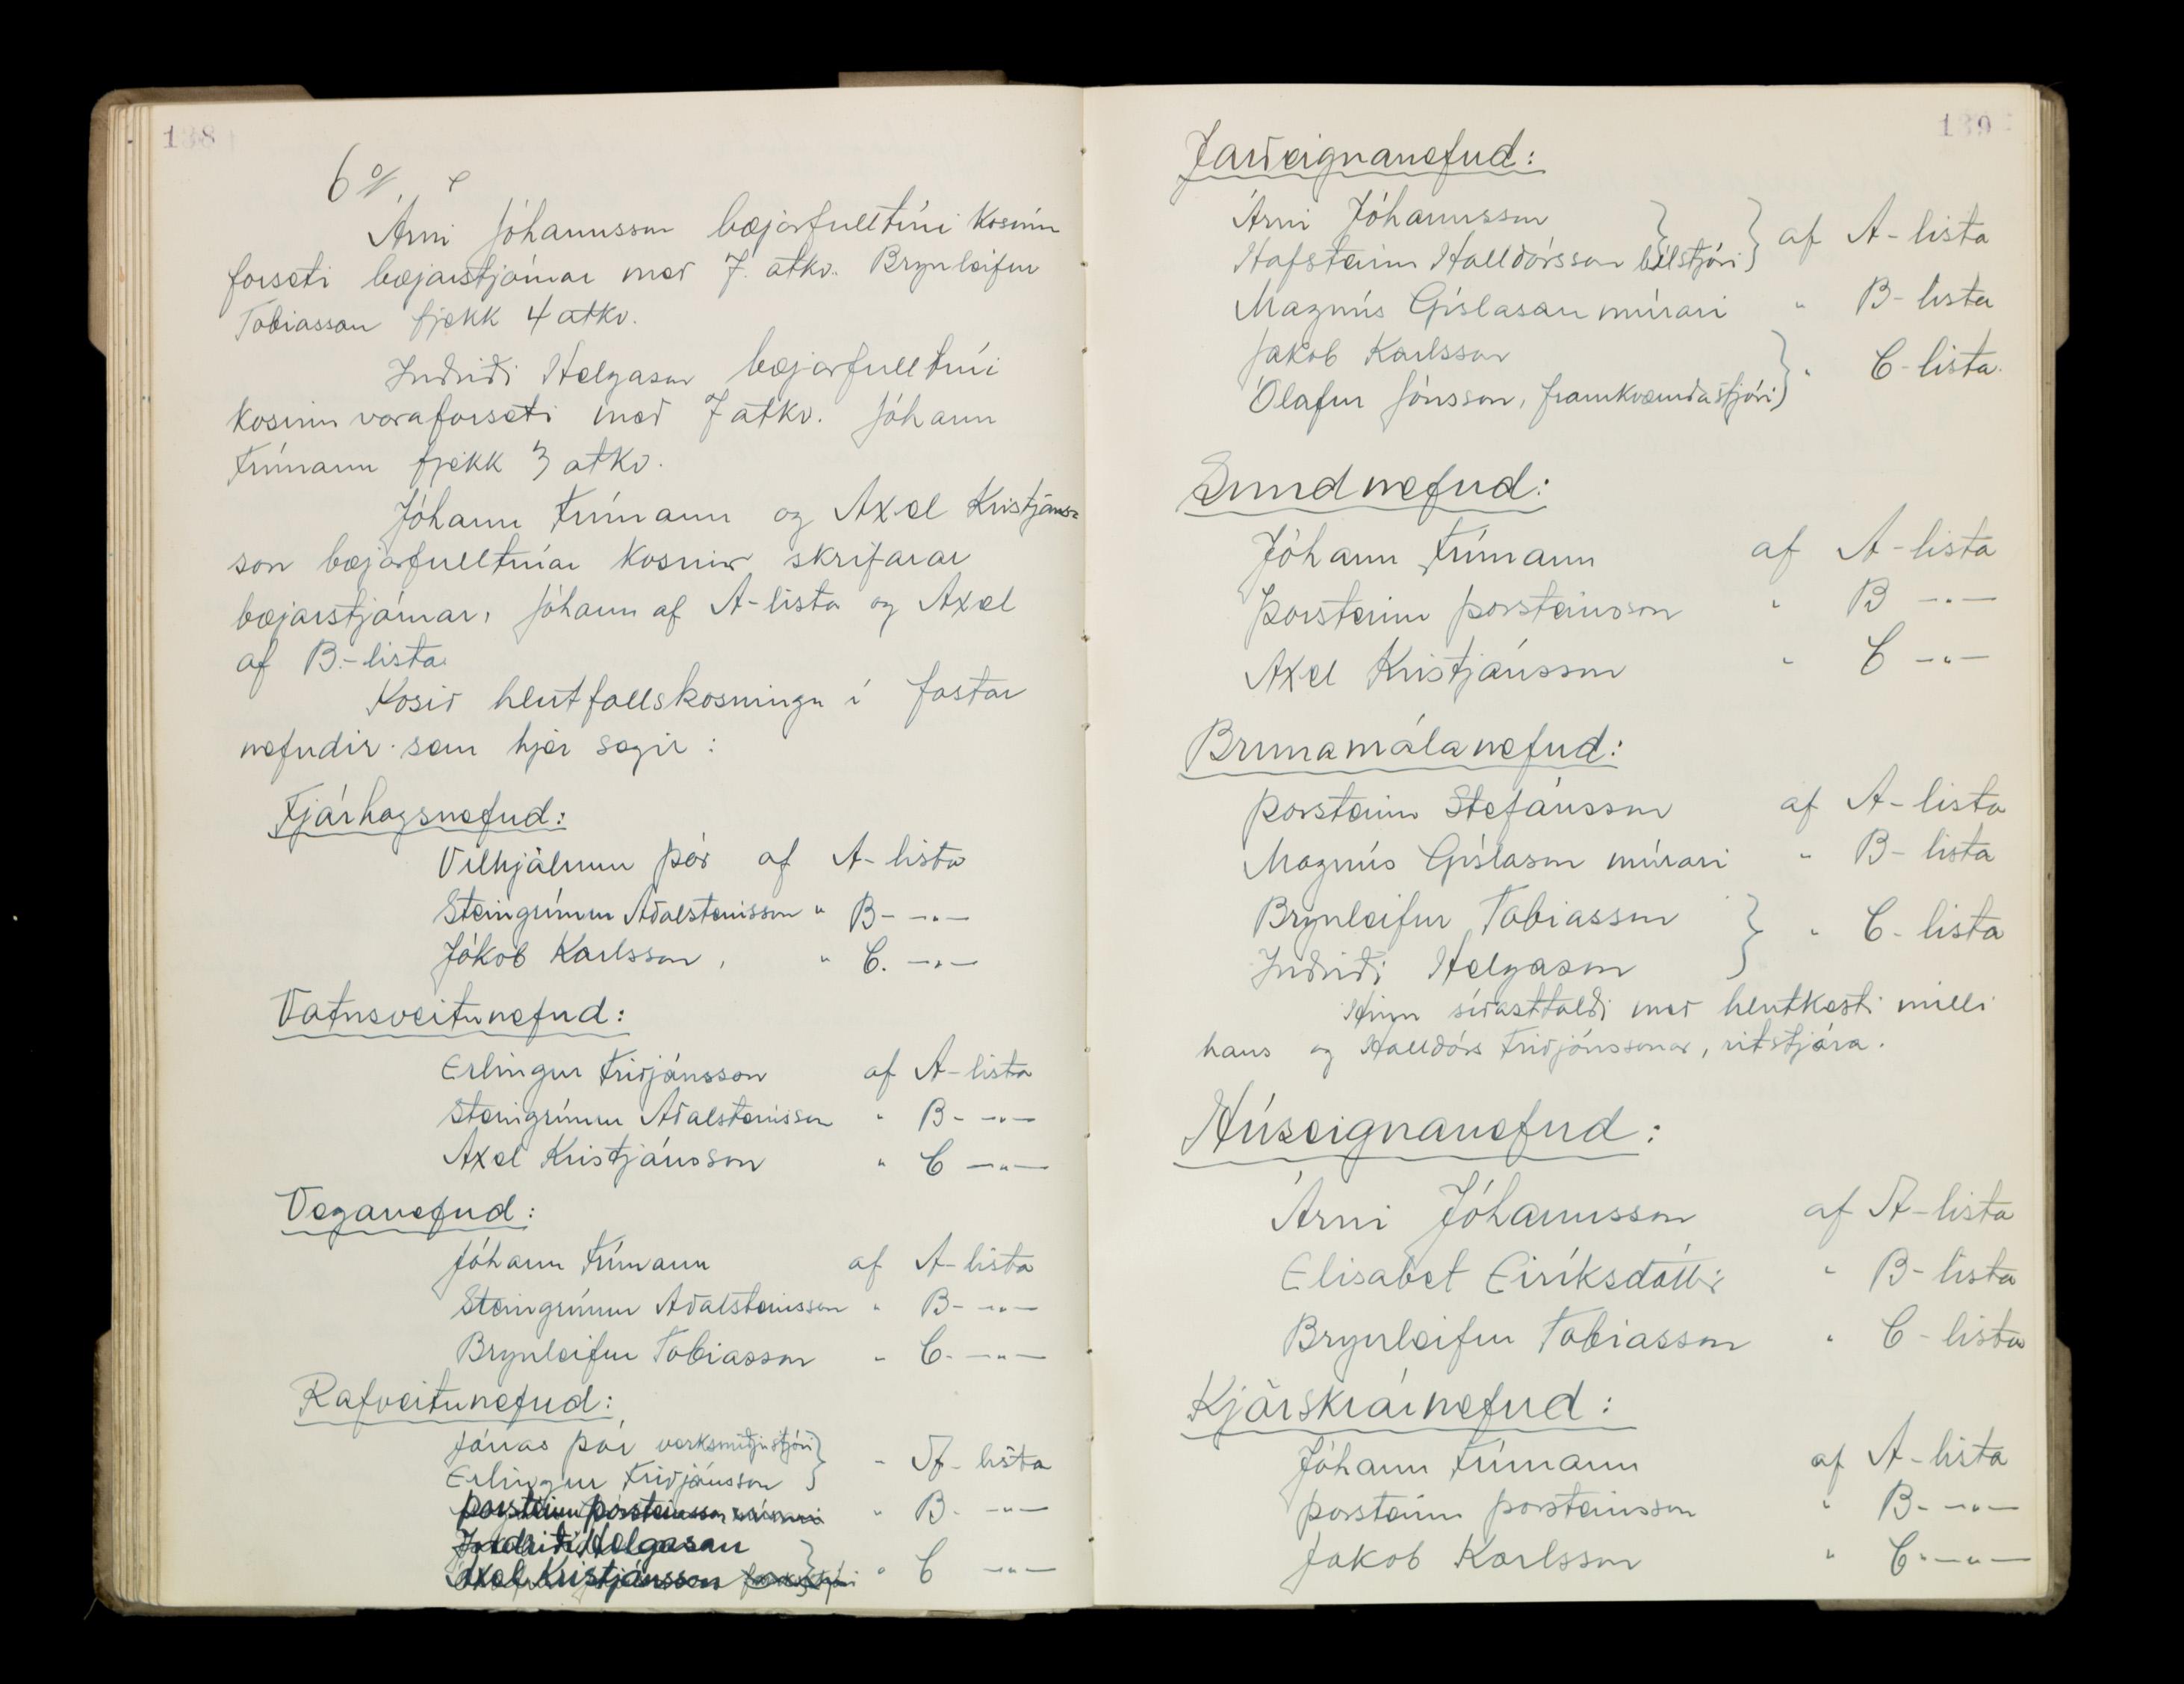 138
6%
Árni Jóhannsson bæjarfulltrúi kosinn
forseti bæjarstjórnar með 7. atkv. Brynleifur
Tobiasson fjekk 4 atkv.
Indriði Helgason bæjarfulltrúi
kosinn varaforseti með 7 atkv. Jóhann
Frímann fjekk 3 atkv.
Jóhann Frímann og Axel Kristjáns=
son bæjarfulltrúar kosnir skrifarar
bæjarstjórnar, Jóhann af A-lista og Axel
af B.-lista.
Kosið hlutfallskosningu í fastar
nefndir sem hjer segir:
Fjárhagsnefnd:
Vilhjálmur Þór af A-lista
Steingrímur Aðalsteinsson " B- —"—
Jakob Karlsson, " C. —"—
Vatnsveitunefnd:
Erlingur Friðjónsson af A-lista
Steingrímur Aðalsteinsson " B- —"—
Axel Kristjánsson " C —"—
Veganefnd:
Jóhann Frímann af A-lista
Steingrímur Aðalsteinsson " B- —"—
Brynleifur Tobiasson " C- —"—
Rafveitunefnd:
Jónas Þór verksmiðjustjóri
Erlingur Friðjónsson } " A- lista
Þorsteinn Þorsteinsson " B- —"—
Indriði Helgason
Axel Kristjánsson } " C —"—
139
Jarðeignanefnd:
Árni Jóhannsson
Hafsteinn Halldórsson bílstjóri } af A-lista
Magnús Gíslason múrari " B-lista
Jakob Karlsson
Ólafur Jónsson, framkvæmdastjóri } " C-lista.
Sundnefnd:
Jóhann Frímann af A-lista
Þorsteinn Þorsteinsson " B —"—
Axel Kristjánsson " C —"—
Brunamálanefnd:
Þorsteinn Stefánsson af A-lista
Magnús Gíslason múrari " B-lista
Brynleifur Tobiasson
Indriði Helgason } " C-lista
Hinn síðasttaldi með hlutkesti milli
hans og Halldórs Friðjónssonar, ritstjóra.
Húseignanefnd:
Árni Jóhannsson af A-lista
Elisabet Eiríksdóttir " B-lista
Brynleifur Tobiasson " C-lista
Kjörskrárnefnd:
Jóhann Frímann af A-lista
Þorsteinn Þorsteinsson " B- —"—
Jakob Karlsson " C- —"—